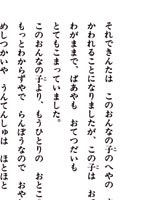 それできんたは　このおんなの子のへやの　す
かわれることになりましたが、この子は　おて
わがままで、ばあやも　おてつだいも
とてもこまっていました。
このおんなの子より、もうひとりの　おとこ
もっとわからずやで　らんぼうなので　おや
めしつかいや　うんてんしゅは　ほとほと